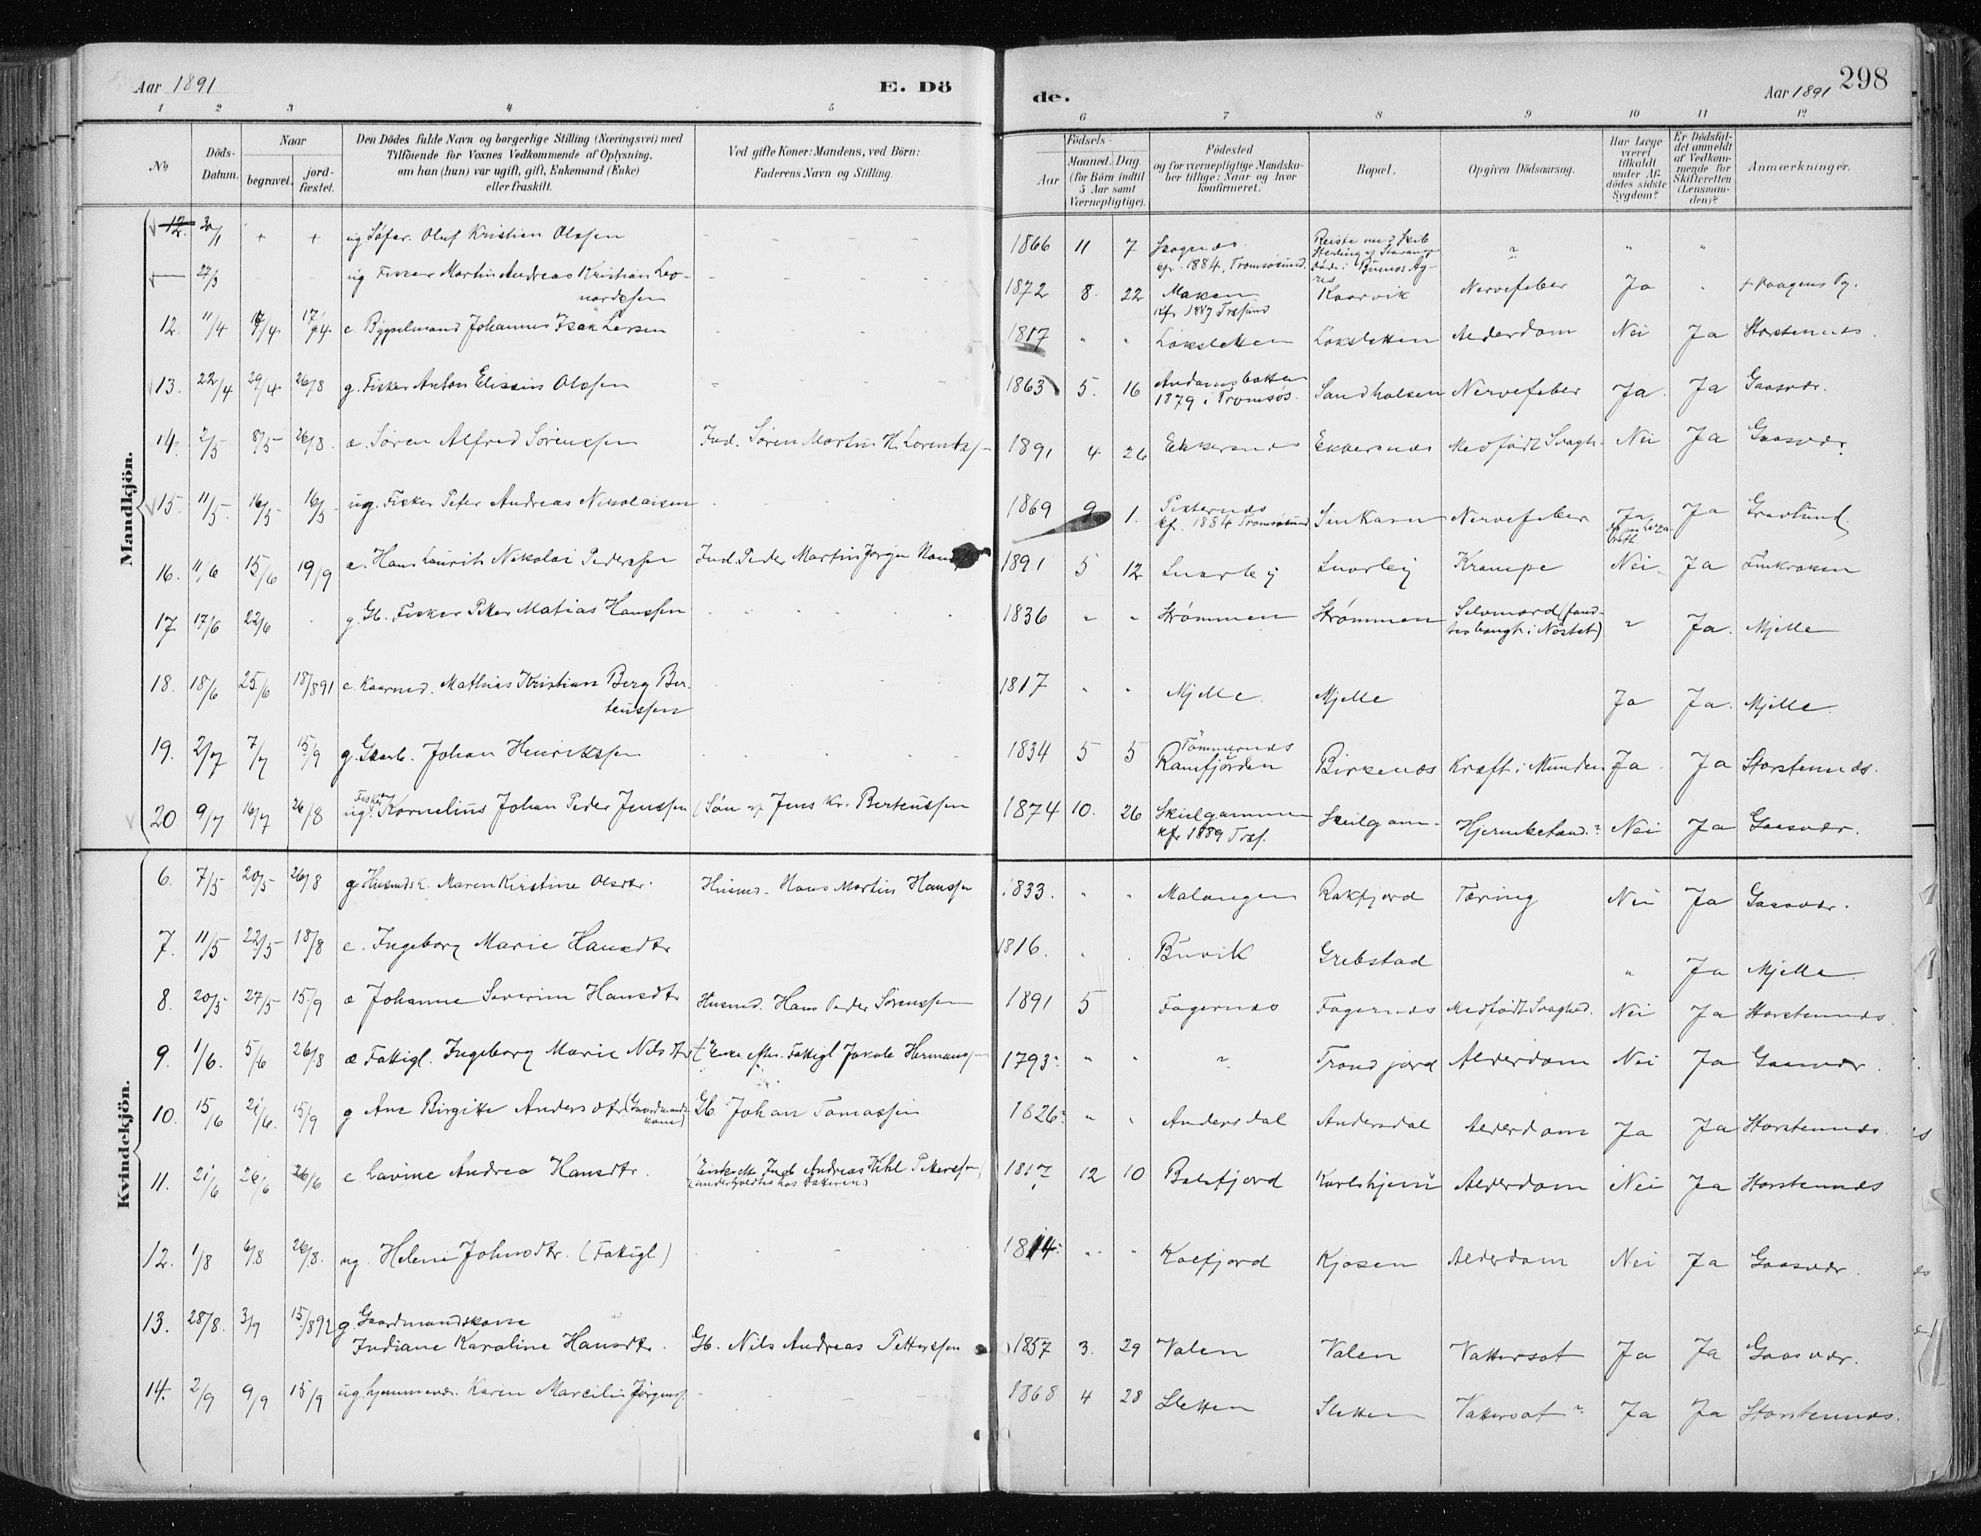 Aar 1891
E. Dö
de.
Aar 1891
298
1 2 3 4 5 6 7 8 9 10 11 12
No.
Döds-Datum.
Naar
begravet.
jord-fæstet.
Den Dödes fulde Navn og borgerlige Stilling (Næringsvei) med
Tilföiende for Voxnes Vedkommende af Oplysning,
om han (hun) var ugift, gift, Enkemand (Enke)
eller fraskilt.
Ved gifte Koner: Mandens, ved Börn:
Faderens Navn og Stilling.
Födsels-
Aar
Maaned. Dag
(for Börn indtil
5 Aar samt
Værnepligtige).
Födested
og for værnepligtige Mandska-
ber tillige: Naar og hvor
konfirmeret.
Bopæl.
Opgiven Dödsaarsag.
Har Læge
været
tilkaldt
under Af-
dödes sidste
Sygdom?
Er Dödsfal-
det anmeldt
af Vedkom-
mende for
Skifteretten
(Lensman-
den)?
Anmærkninger.
Mandkjön.
12. 20/1 + + ug Oluf Kristian Olsen 1866 11 7 kfr. 1884, Tromsøsund.
27/3 ug Fisker Martin Andreas Kristian Leo-
nardsen 1872 8. 22 kfr 1887 Kaarvik Nervefeber Ja
12. 11/4 17/4 17/4 e. Johannes Isak Larsen 1817 " " Lakselvetten Alderdom Nei Ja Storstennes.
13. 22/4 29/4 26/8 g. Fisker Anton Elisæus Olsen 1863 5. 16 1879 i Tromsøs. Nervefeber Ja. Ja Gaasvær.
14. 2/5 8/5 26/8. æ Søren Alfred Sørenssen Ind. Søren Martin H. 1891 4 26 Ekkersnes Ekkersnes Medfødt Svagh. Nei Ja Gaasvær
15. 11/5. 16/5 16/5 ug. Fisker Peter Andreas Nikolaisen 1869 9 1. kf. 1884 Tromsøsund Nervefeber Ja Ja Gravlund
16. 11/6 15/6 19/9 æ. Hans Laurits Nikolai Pederssen Ind. Peder Martin Jørgen 1891 5 12 Krampe Nei Ja Finkroken
17. 17/6 22/6 g. Gb. Fisker Peter Matias Hanssen 1836 " " Strømmen Strømmen Selvmord (fand-
tes hængt i Nøstet) " Ja. Mjelle
18. 18/6 25/6 18/8 91 e. Kaarmd. Mathias Kristian Berg Ber-
teussen 1817 " " Mjelle. Mjelle Ja Ja. Mjelle.
19. 2/7 7/7 15/9 g. Gaarb. Johan Henrikssen 1834 5 5 Tømmernes
Ramfjorden Birkenes Kræft i Munden Ja. Ja Storstennes.
20. 9/7 16/7 26/8 ug. Fisker Kornelius Johan Peder Jenssen (Søn af Jens Kr. Berteussen 1874 10. 26 Skulgammen
kfr 1889 Skulgam. Nei Ja Gaasvær.
Kvindekjön.
6. 7/5 20/5 26/8 g. Husmdsk. Maren Kirstine Olsdtr. Husmd. Hans Martin Hanssen 1833. " " Malangen Rakfjord Tæring Nei Ja Gaasvær.
7. 11/5 22/5 18/8 e. Ingeborg Marie Hansdtr 1816. " . Buvik Grebstad " Ja Mjelle
8. 20/5 27/5 15/9 æ Johanne Severine Hansdtr Husmd. Hans Peder Sørenssen 1891 5 Fagernes Fagernes Medfødt Svaghed. Nei Ja Storstennes.
9. 1/6. 5/6 26/8 æ Fattigl. Ingeborg Marie Nilsdtr (Enke efter Fattigl Jakob Hermans 1793. " " " Trondjord Alderdom Nei Ja Gaasvær.
10. 15/6 21/6. 15/9 g Ane Birgitte Andersdtr (Gaardmands-
kone) Gb. Johan Tomassen 1826. " " Andersdal Andersdal Alderdom Ja Ja Storstennes.
11. 21/6 26/6 26/6 e Lavine Andrea Hansdtr. Andreas Petterssen 1817 12 10 Balsfjord Karlshjem Alderdom Nei Ja Storstennes
12. 1/8 6/8 26/8. ug. Helene Johnsdtr. (Fattigl) 1814. " " Kalfjord Kjosen Alderdom Nei Ja Gaasvær.
13. 28/8. 3/9 15/8 92 g. Gaardmandskone
Indiane Karoline Hansdtr. Gb. Nils Andreas Petterssen 1857 3. 29 Valen Valen Vattersot Ja Ja Gaasvær.
14. 2/9 9/9 15/9 ug. Karen Marcilie Jørgens. 1868 4 28 Sletten Sletten Vattersot ? Ja Ja Storstennes.